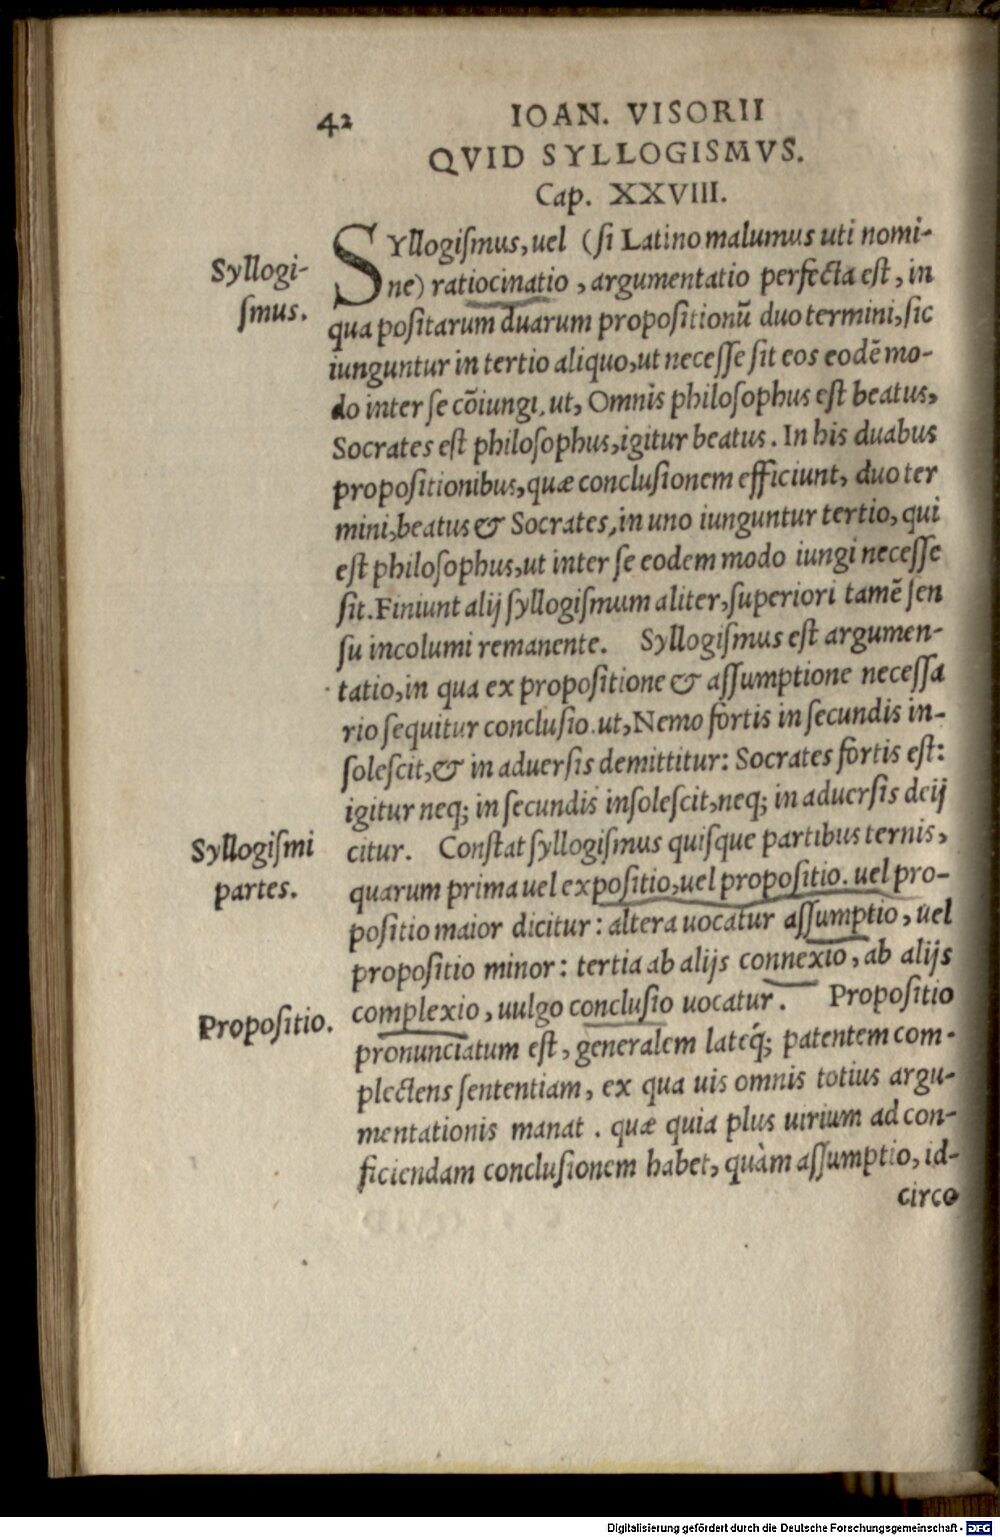 42 IOAN. VISORII
QVID SYLLOGISMVS.
Cap. XXVIII.
Syllogi-
ſmus.
SYllogiſmus, uel (ſi Latino malumus uti nomi-
ne) ratiocinatio, argumentatio perfecta eſt, in
qua poſitarum duarum propoſitionū duo termini, ſic
iunguntur in tertio aliquo, ut neceſſe ſit eos eodē mo-
do inter ſe cōiungi. ut, Omnis philoſophus eſt beatus,
Socrates eſt philoſophus, igitur beatus. In his duabus
propoſitionibus, quæ concluſionem efficiunt, duo ter
mini, beatus & Socrates, in uno iunguntur tertio, qui
eſt philoſophus, ut inter ſe eodem modo iungi neceſſe
ſit. Finiunt alij ſyllogiſmum aliter, ſuperiori tamē ſen
ſu incolumi remanente. Syllogiſmus eſt argumen-
tatio, in qua ex propoſitione & aſſumptione neceſſa
rio ſequitur concluſio. ut, Nemo fortis in ſecundis in-
ſoleſcit, & in aduerſis demittitur: Socrates fortis eſt:
igitur neq; in ſecundis inſoleſcit, neq; in aduerſis deij
citur. Conſtat ſyllogiſmus quiſque partibus ternis,
Syllogiſmi
partes.
quarum prima uel expoſitio, uel propoſitio. uel pro-
poſitio maior dicitur: altera uocatur aſſumptio, uel
propoſitio minor: tertia ab alijs connexio, ab alijs
complexio, uulgo concluſio uocatur. Propoſitio
Propoſitio.
pronunciatum eſt, generalem lateq́; patentem com-
plectens ſententiam, ex qua uis omnis totius argu-
mentationis manat. quæ quia plus uirium ad con-
ficiendam concluſionem habet, quàm aſſumptio, id-
circo
Digitalisierung gefördert durch die Deutsche Forschungsgemeinschaft - DFG